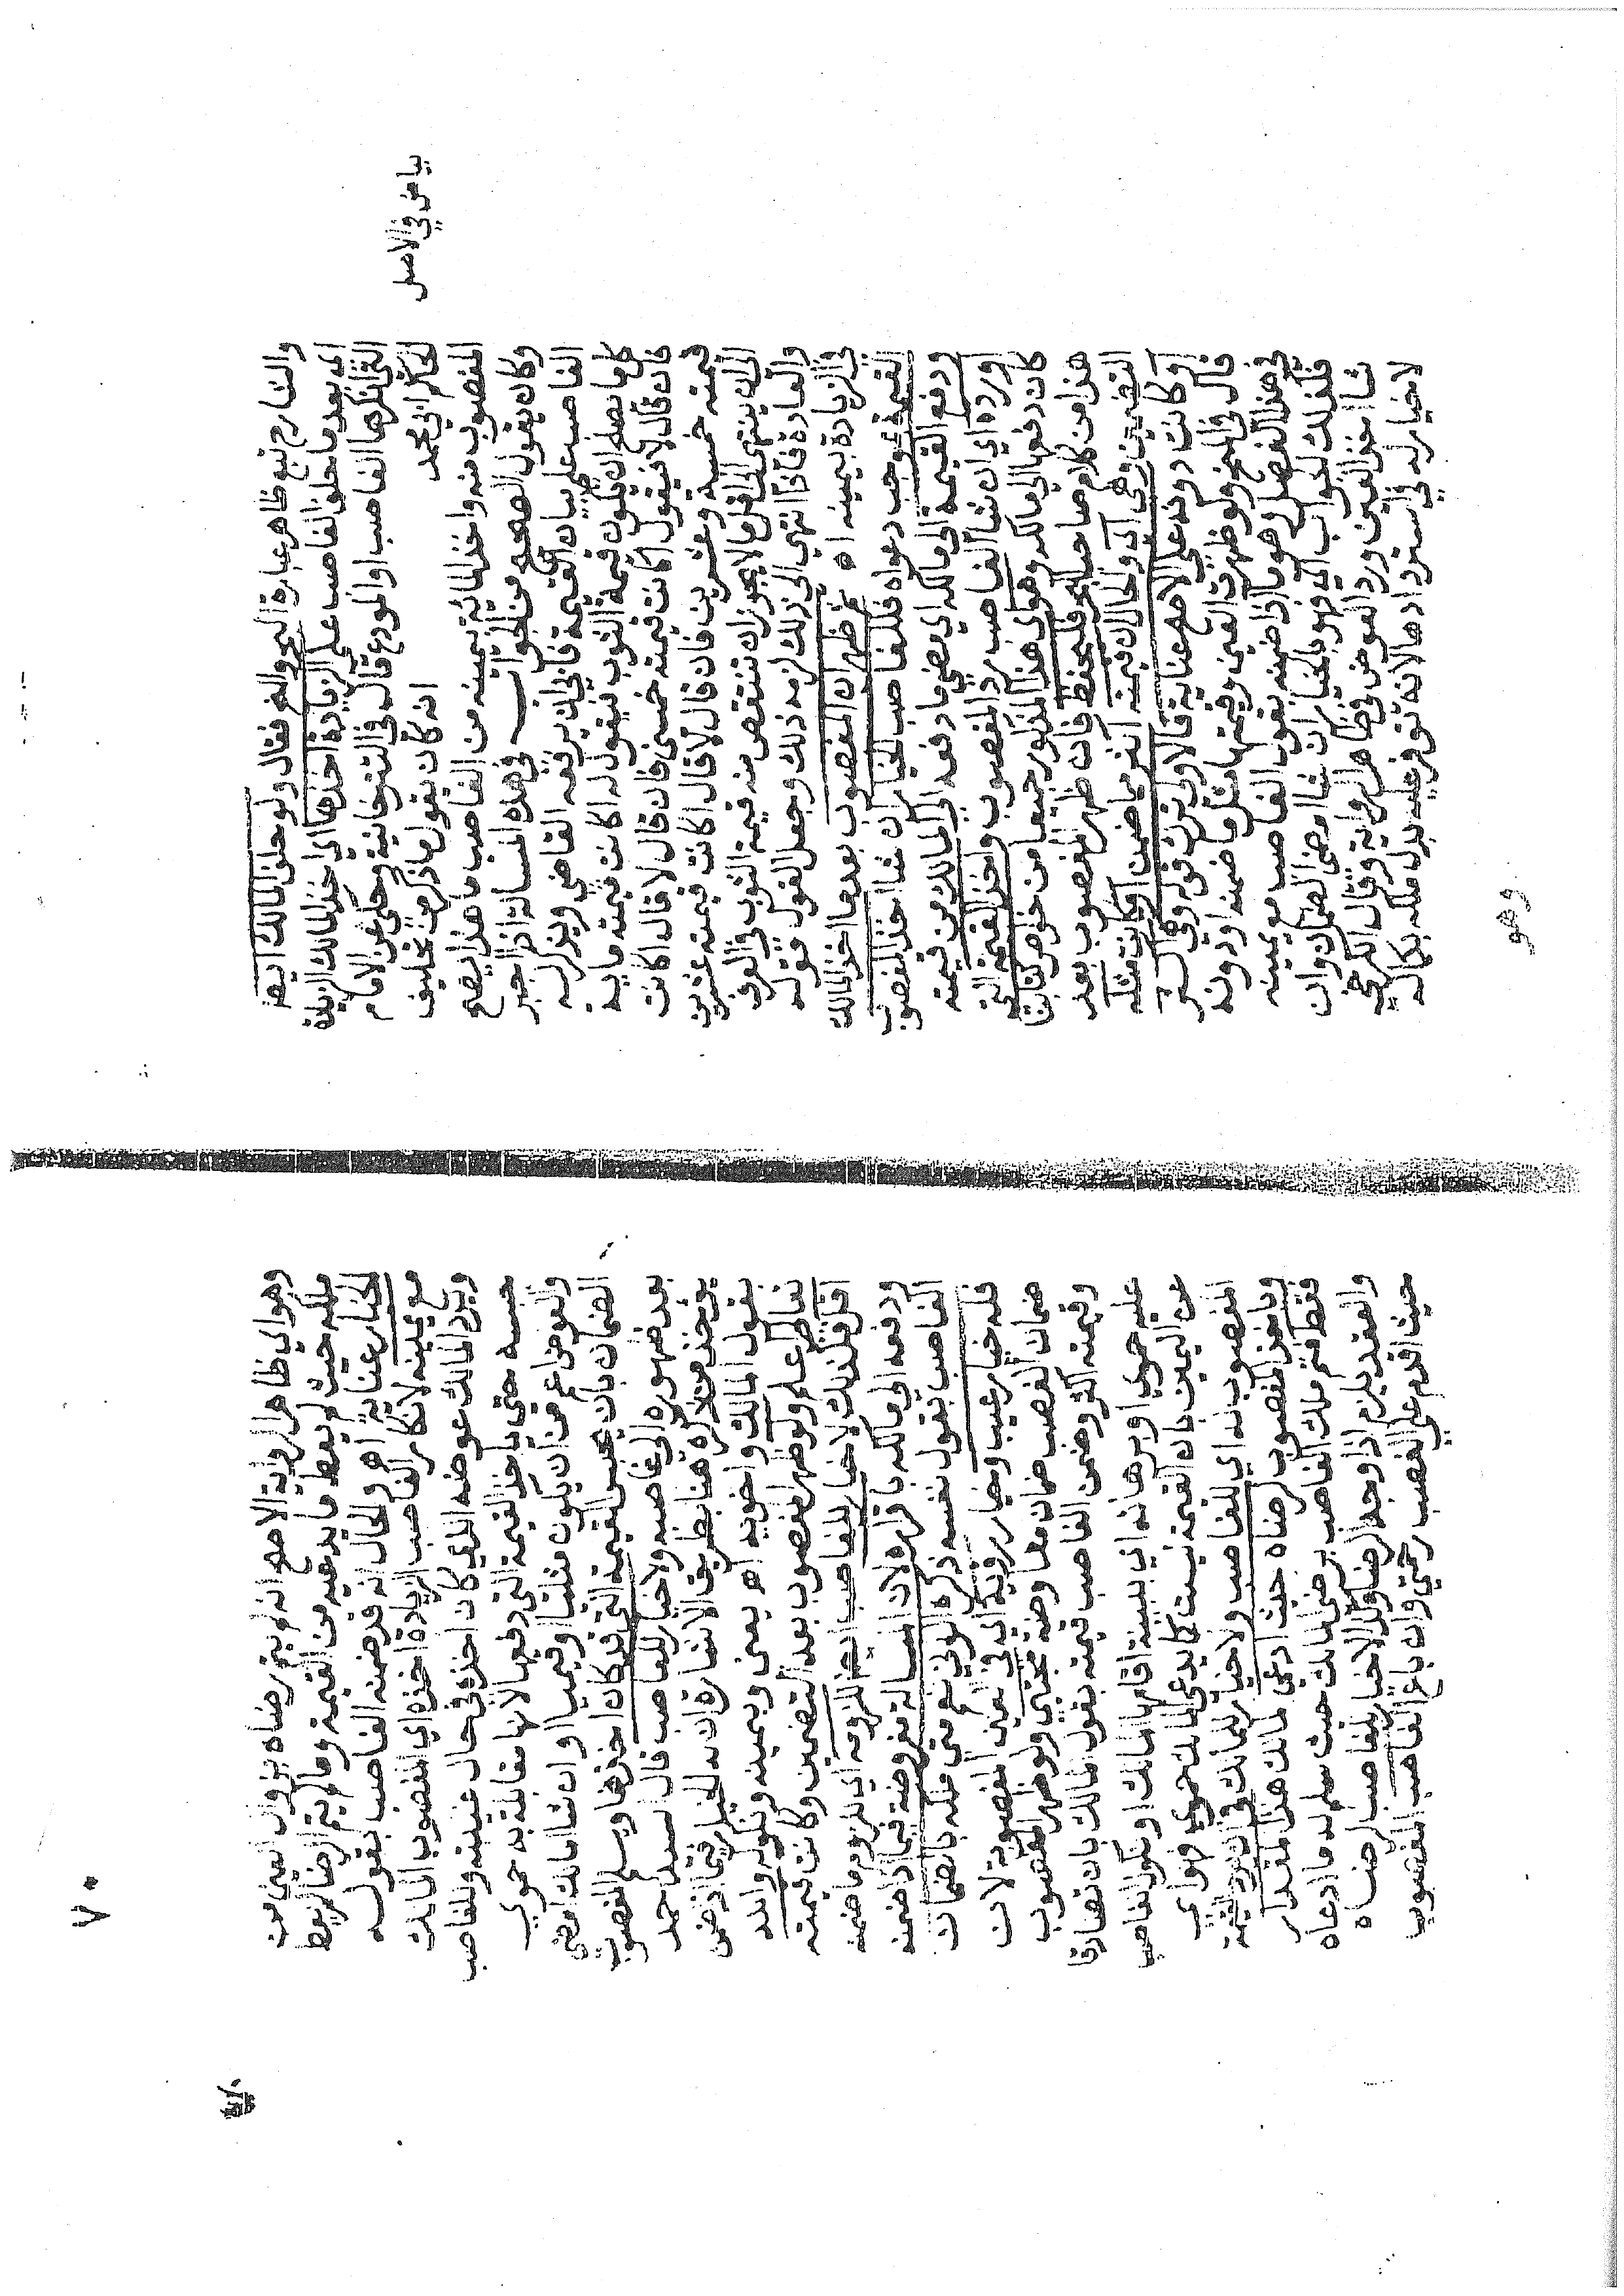 والشارح تبع ظاهر عبارة البحر والمنح فقال ولو حلف المالك ايضا
اي بعد ما حلف الغاصب على الزيادة اخذها اي اخذ المالك الزيادة
التي انكرها الغاصب او المودع قال في التترخانية وحكي عن الامام
الحاكم ابي محمد انه كان يقول ما ذكر من تحليف
بياض في الاصل
المغصوب منه واخذ المائة بيمينه من الغاصب ما هذا يصح
وكان يقول الصحيح من الجواب في هذه المسالة اذا اجبر
الغاصب على بيان القيمة فابى ان يرفعه القاضي ويذكر له
كل ما يصلح ان يكون قيمة الثوب فيقول له اكانت قيمته ماية
فان قال لا فيقول اكانت قيمته خمسين فان قال لا قال اكانت
قيمته خمسة وعشرين فان قال لا قال اكانت قيمته عشرين
الى ان ينتهي الى اقل ما لا يجوز ان تنتقص منه قيمة الثوب في العرف
والعادة فاذا انتهى الى ذلك لزمه ذلك وجعل القول قوله
في الزيادة بيمينه اه ثم ظهر ان المغصوب بعد ما اخذ المالك
القيمة بموجب دعواه فللغاصب الخيار ان شا اخذ المغصوب
ودفع القيمة الى مالكه اي مضى ما دفعه الى المالك من قيمته
او رده اي ان شا الغاصب رد المغصوب واخذ القيمة التي
كان دفعها الى مالكه وهو اي هذا المذكور جميعا من خواص كتابنا
هذا من كلام صاحب البحر فليحفظ فان ظهر المغصوب بعد
التضمين وهي اي والحال ان قيمته اكثر مما ضمن او كانت مثله
او كانت دونه على الاصح عناية فالاولى ترك قوله وهي اكثر
قال في المنح ولو ظهرت العين وقيمتها مثل ما ضمنه او دونه
في هذا الفصل وهو ما اذا ضمنه بقول الغاصب مع يمينه
فكذلك الجواب اي فهو بالخيار ان شا امضى الضمان وان
شا اخذ العين ورد العوض في ظاهر الرواية وقال الكرخي
لا خيار له في استردادها لانه توفر عليه بدل ملكه بكماله
وهو
٧٠
وهو اي ظاهر الرواية الاصح انه لم يتم رضاه بزوال العين من
ملكه حيث لم يعط ما يدعيه من القيمة وما لم يتم الرضا لم يعط
الخيار عناية اه والحال انه قد ضمنه الغاصب بقوله
مع يمينه لانكار الغاصب الزيادة اخذه اي المغصوب المالك
ويرد المالك عوضه الذي كان اخذه في حال غيبته وللغاصب
حبسه حتى ياخذ القيمة التي دفعها لانها مقابلة به حموي
والعوض اعم من ان يكون مثليا او قيميا او ان شا المالك امضى
الضمان بان يحبس القيمة التي قد كان اخذها ويسلم المغصوب
بعد ظهوره الى غاصبه ولا خيار للغاصب قال السيد احمد
يؤخذ من ذكره هنا بطريق الاشارة ان له الخيار فيما اذا ضمن
بقول المالك واخويه اه يعني وبيمينه ونكوله والله
تعالى اعلم ولو ظهر المغصوب بعد التضمين وكانت قيمته
اقل فكذلك لا خيار للغاصب ايضا للزومه اي لزوم ما ضمنه
ودفعه الى مالكه باقراره لان المسالة مفروضة فيما اذا ضمنه
الغاصب بقول نفسه ذكره الواني نعم متى ملكه بالضمان
فله خيار عيب وخيار رؤية اي في العين المغصوبة لان
ضمان الغصب ضمان معاوضة مجتبى ولو ظهر المغصوب
وقيمته اكثر وضمن الغاصب قيمته بقول المالك بان تصادقا
عليه حموي او برهانه اي ببينة اقامها المالك او نكول الغاصب
عن اليمين بان القيمة ليست كما يدعي المالك حموي فهو اي
المغصوب له اي للغاصب ولا خيار للمالك في
وياخذ المغصوب لرضاه حيث ادعى المالك هذا المقدار
فقط فتم ملك الغاصب برضى المالك حيث سلم له ما ادعاه
والعقد يلزم اذا وجد الرضا وكذا لا خيار للغاصب لرضاه
حيث اقدم على الغصب مجتبى وان باع الغاصب المغصوب